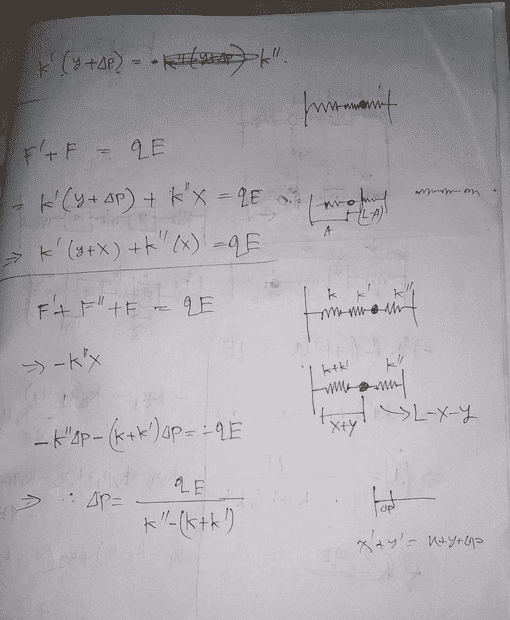 k' (y+ΔP) = k''.
F'+F = qE
= k'(y+ΔP) + k''x = qE
A
(L-A)
⇒ k'(y+x) + k''(x) = qE
F'+F''+F = qE
k k' k''
⇒ -k''x
k+k' k''
x+y → L-x-y
-k''ΔP-(k+k')ΔP = -qE
⇒ ∴ ΔP = qE
k''-(k+k')
ΔP
x'+y' = x+y+ΔP